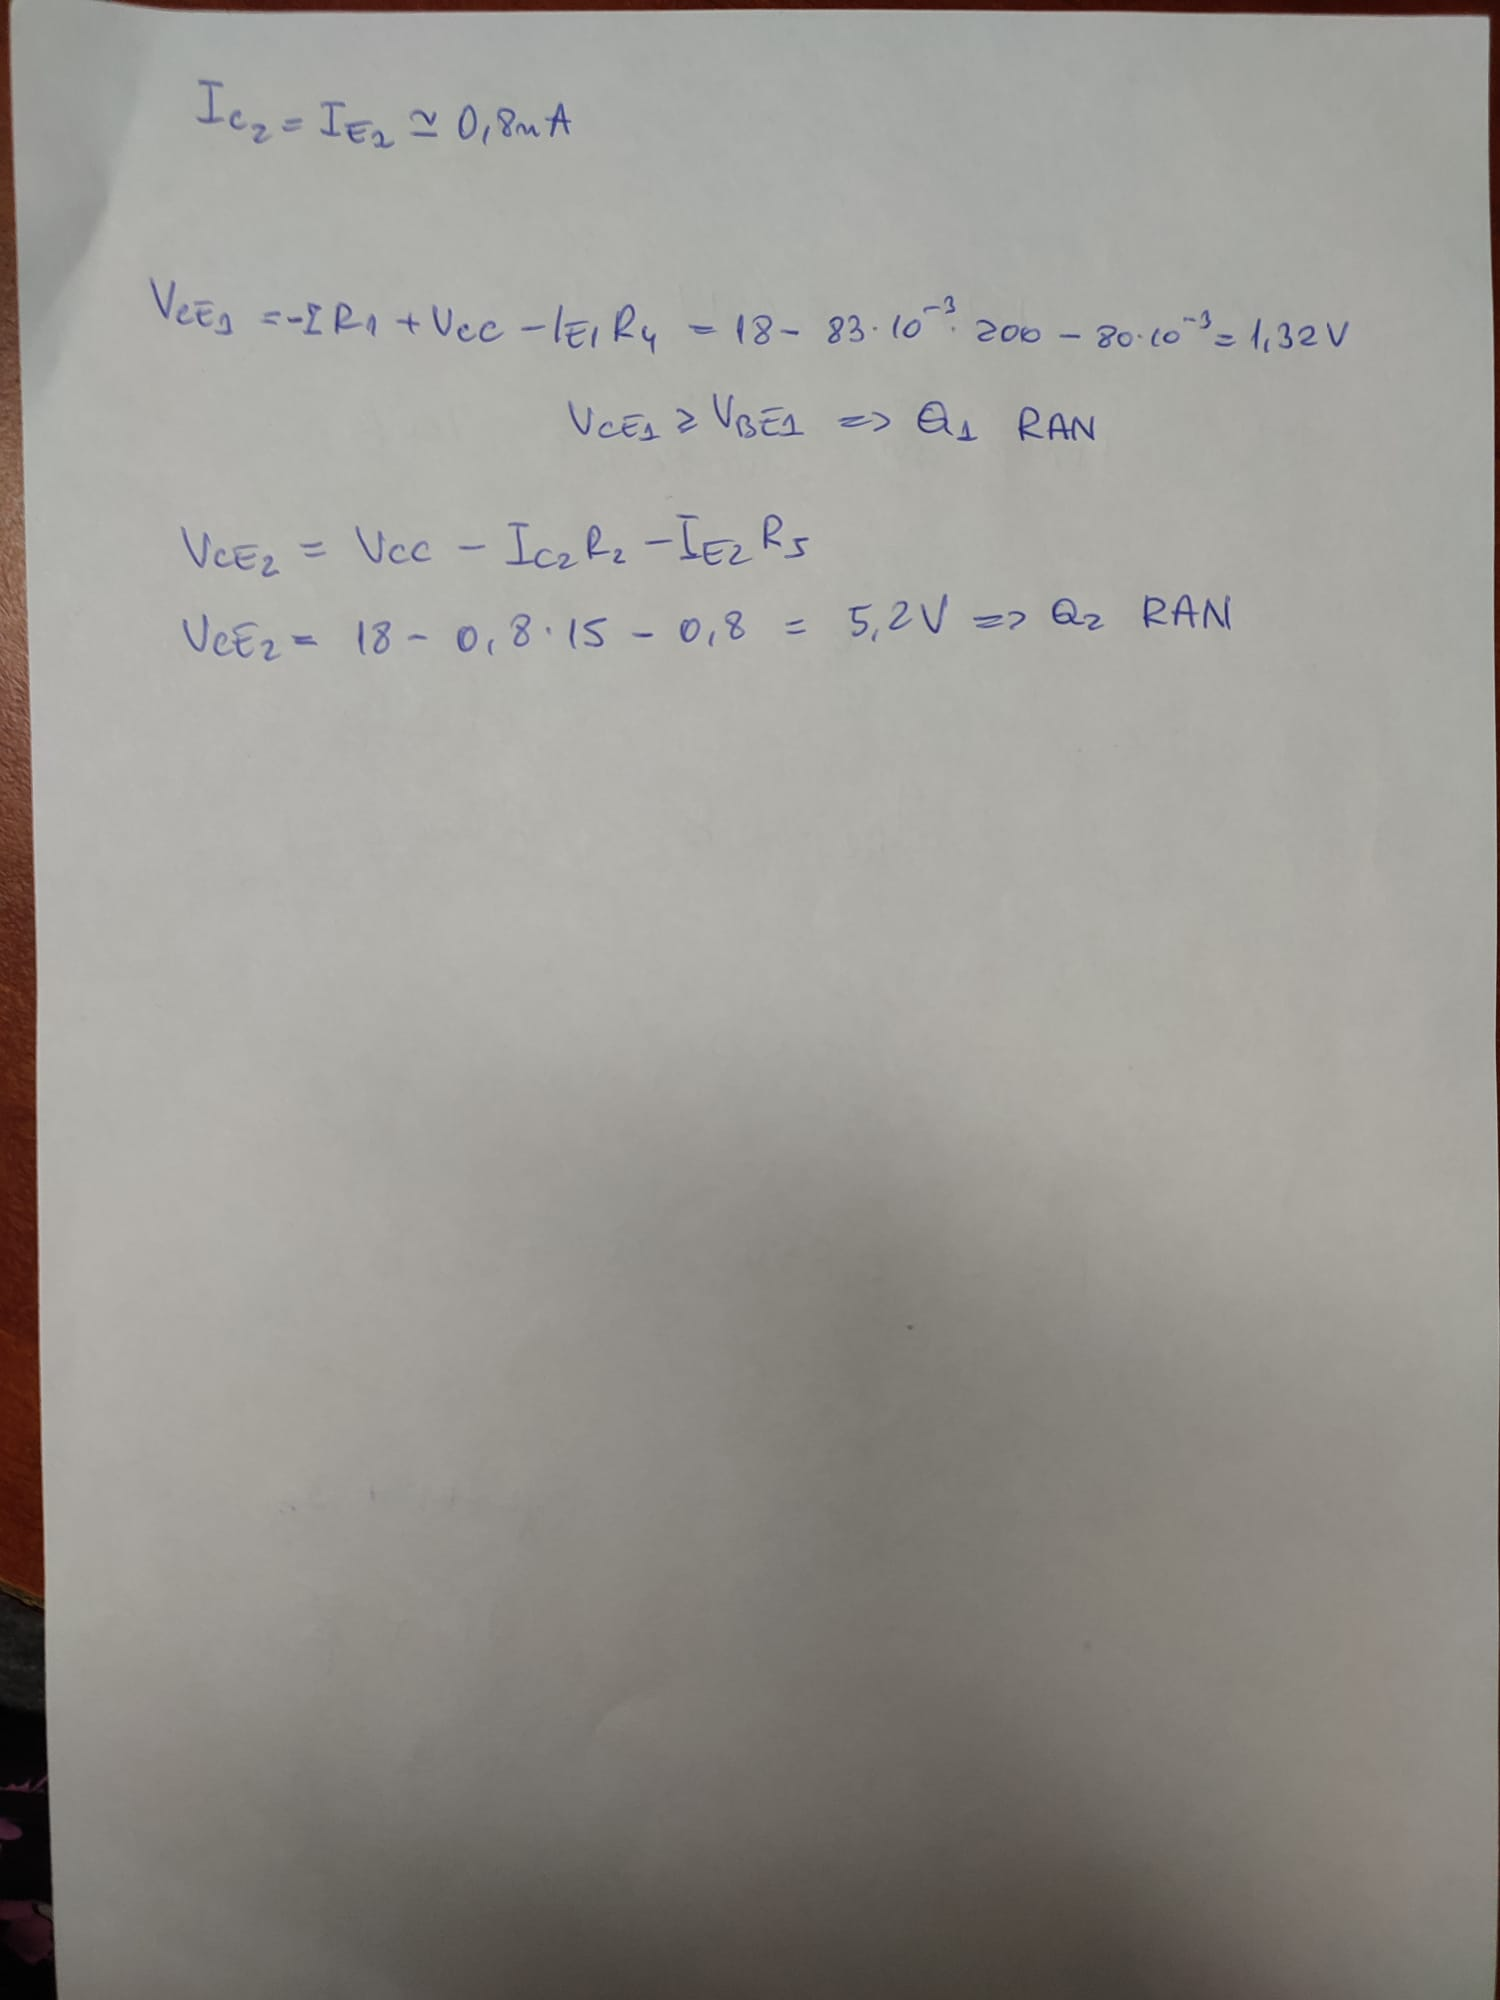 I_C2 = I_E2 ≃ 0,8mA
V_CE1 = -I R1 + Vcc - I_E1 R4 = 18 - 83·10^-3 · 200 - 80·10^-3 = 1,32V
V_CE1 ≥ V_BE1 => Q1 RAN
V_CE2 = Vcc - I_C2 R2 - I_E2 R5
V_CE2 = 18 - 0,8·15 - 0,8 = 5,2V => Q2 RAN